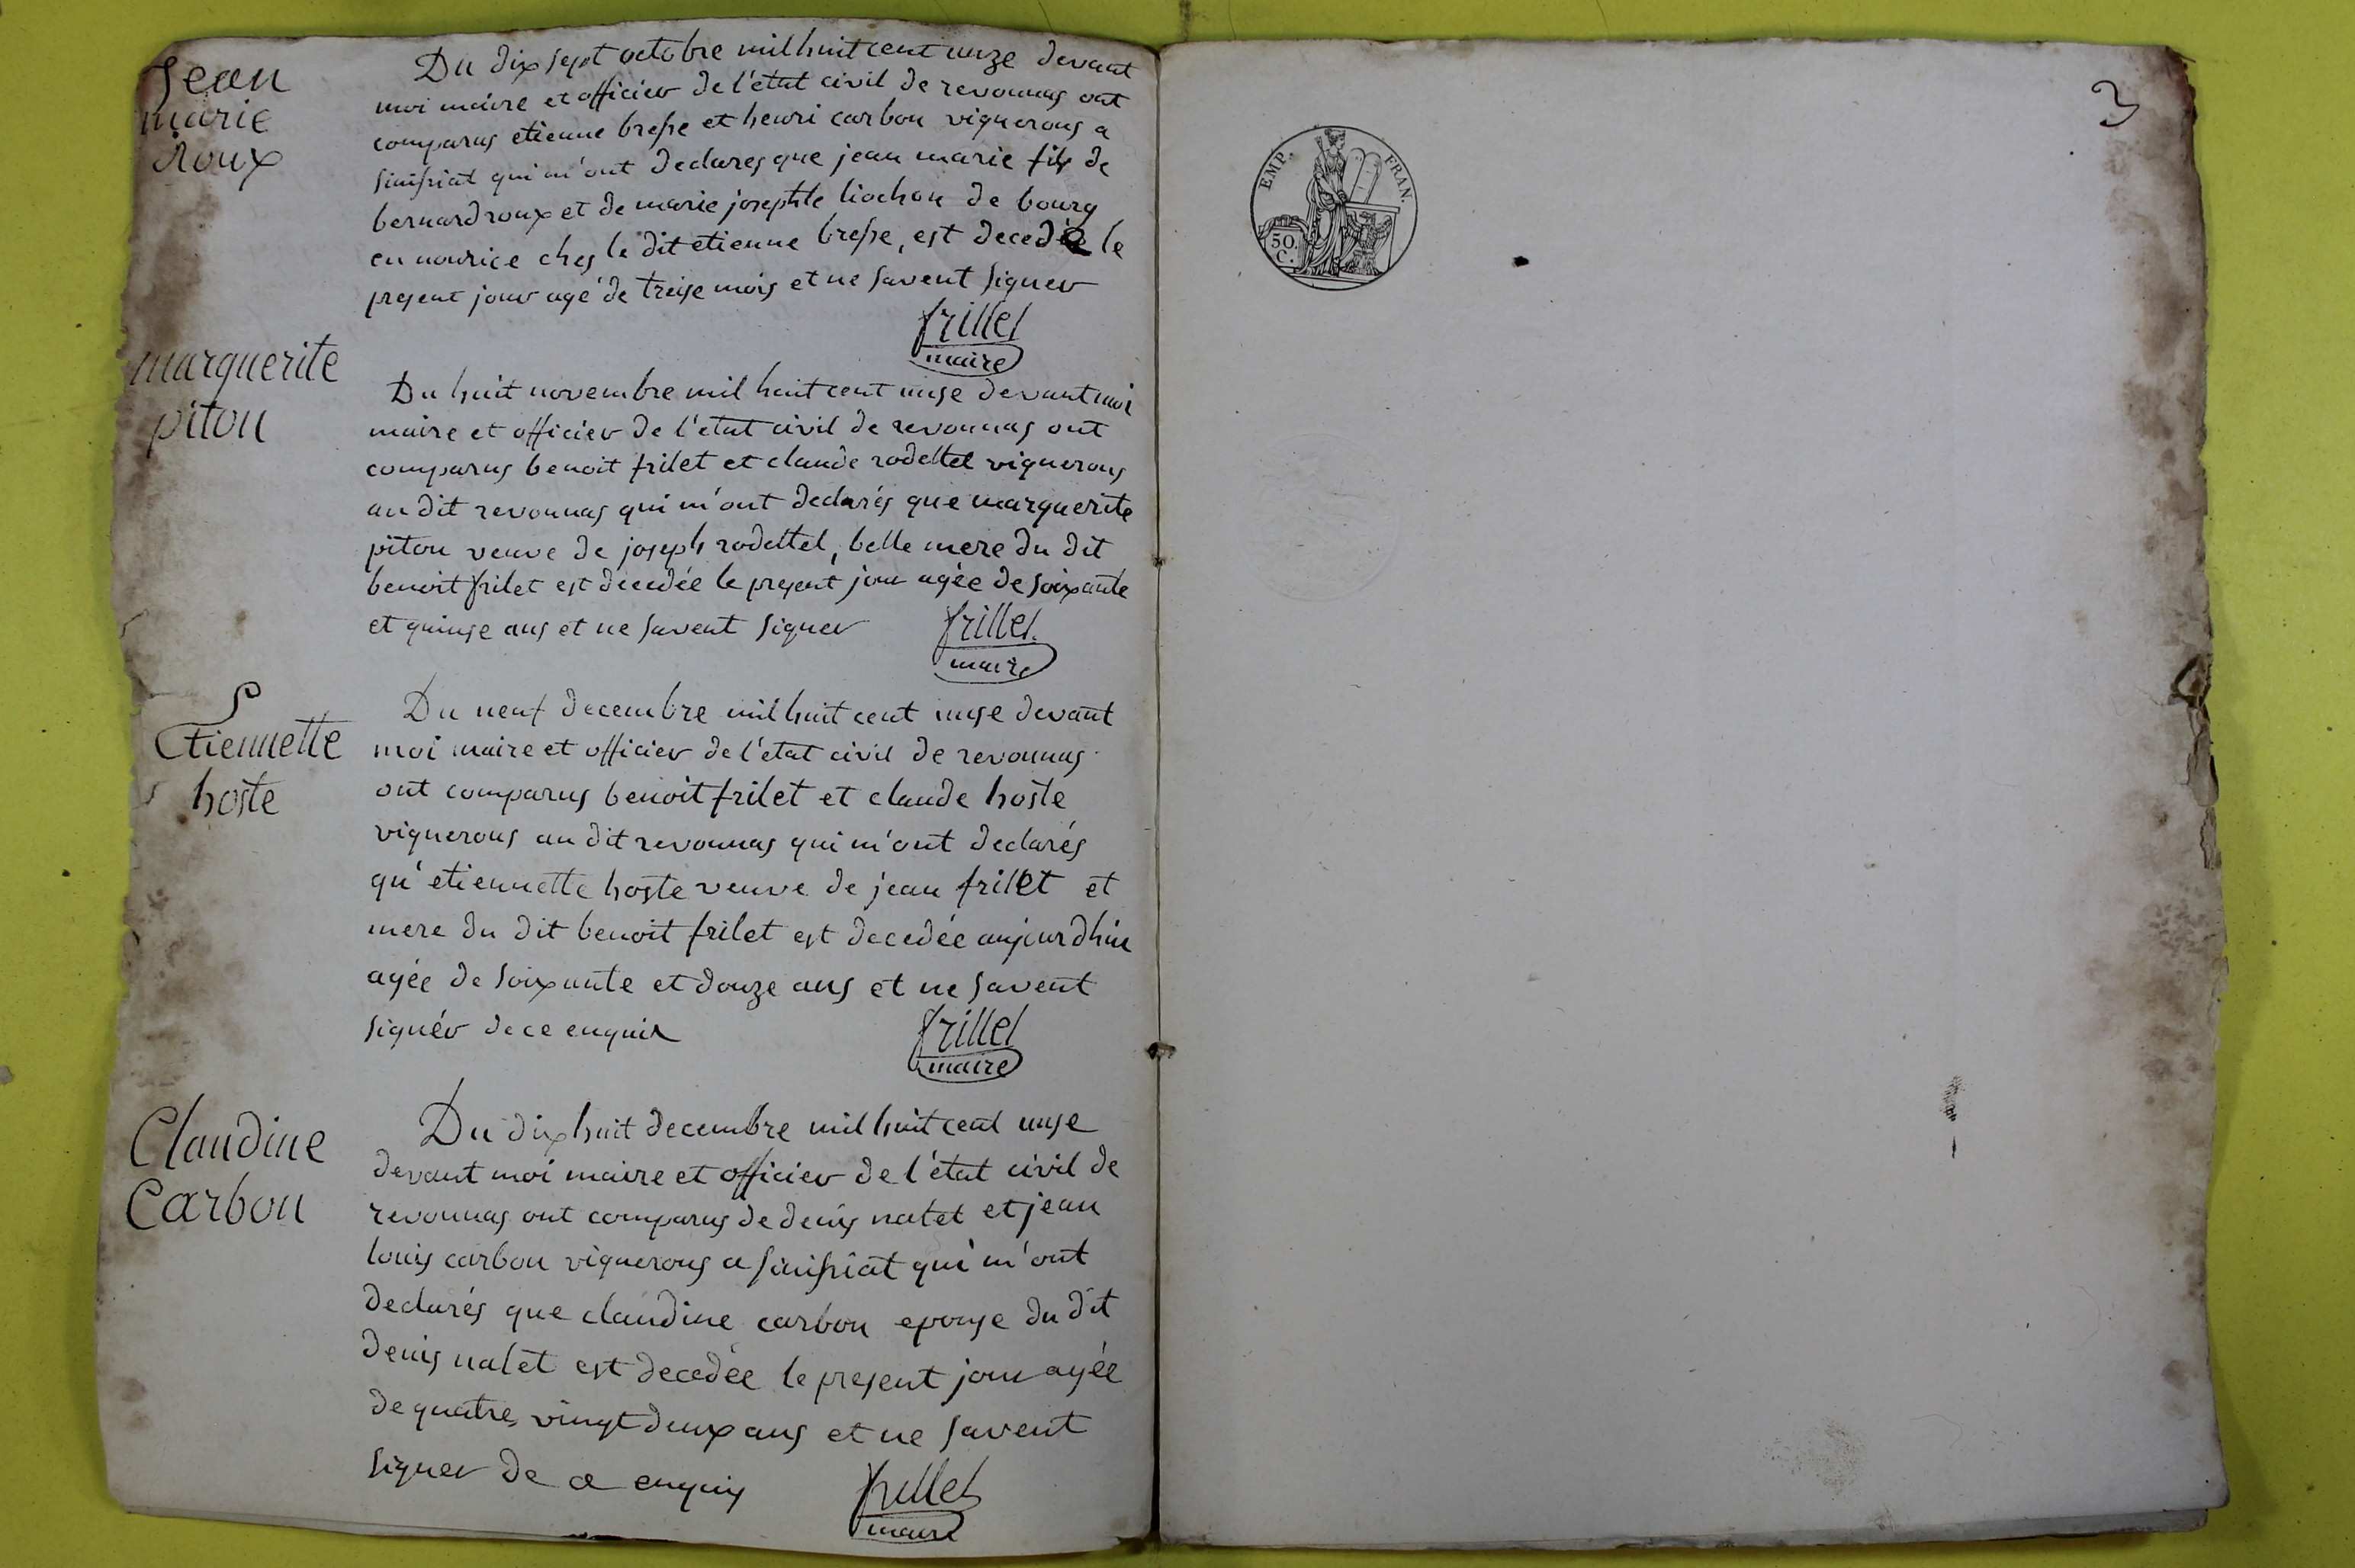 Jean
marie
Roux
Du dix sept octobre mil huit cent unze devant
moi maire et officier de l'état civil de revonnas ont
comparus etienne bresse et henri carbon vignerons a
sinissiat qui m'ont declarés que jean marie fils de
bernard roux et de marie josephte liochon de bourg
en nourice ches le dit etienne bresse, est decedé le
present jour agé de treise mois et ne savent signer
frillet
maire
marguerite
piton
Du huit novembre mil huit cent unse devant moi
maire et officier de l'etat civil de revonnas ont
comparus benoit frilet et claude rodettet vignerons
au dit revonnas qui m'ont declarés que marguerite
piton veuve de joseph rodettet, belle mere du dit
benoit frilet est decedée le present jour agée de soixante
et quinse ans et ne savent signer
frillet
maire
Etiennette
hoste
Du neuf decembre mil huit cent unse devant
moi maire et officier de l'état civil de revonnas
ont comparus benoit frilet et claude hoste
vignerons au dit revonnas qui m'ont declarés
qu'etiennette hoste veuve de jean frilet et
mere du dit benoit frilet est decedée aujourdhui
agée de soixante et douze ans et ne savent
signér de ce enquis
frillet
maire
Claudine
Carbon
Du dix huit decembre mil huit cent unse
devant moi maire et officier de l'état civil de
revonnas ont comparus de denis natet et jean
louis carbon vignerons a sinissiat qui m'ont
declarés que claudine carbon epouse du dit
denis natet est decedée le present jour agée
de quatre vingt deux ans et ne savent
signer de ce enquis
frillet
maire
3
EMP. FRAN.
50
C.